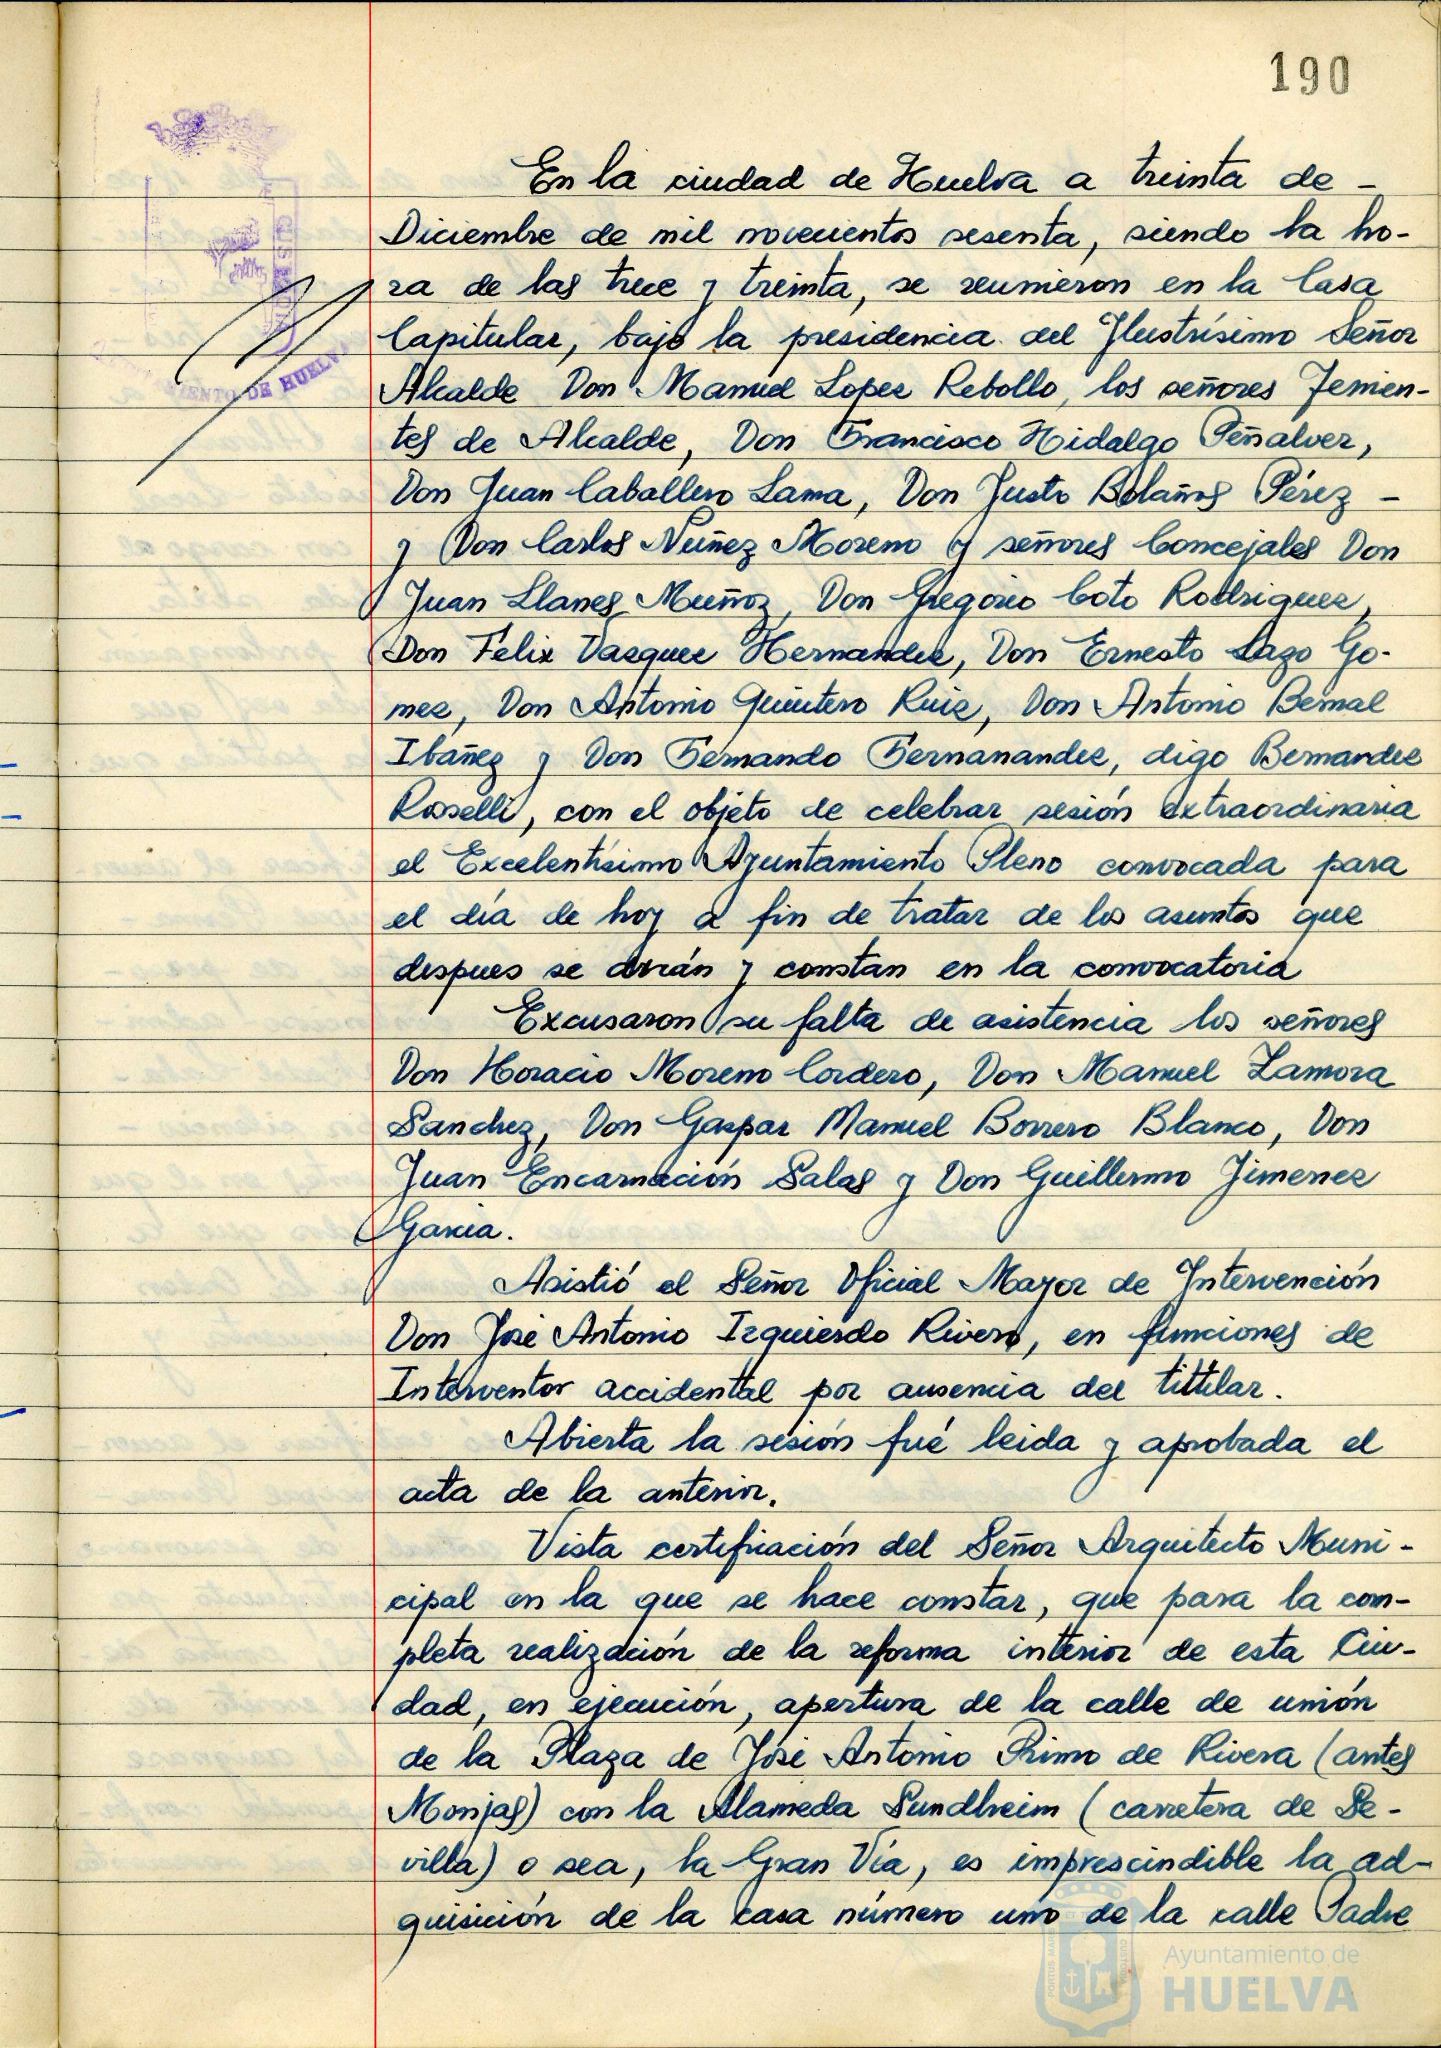 190
En la ciudad de Huelva a treinta de -
Diciembre de mil novecientos sesenta, siendo la ho-
ra de las trece y treinta, se reunieron en la Casa
Capitular, bajo la presidencia del Ilustrísimo Señor
Alcalde Don Manuel Lopez Rebollo, los señores Tenien-
tes de Alcalde, Don Francisco Hidalgo Peñalver,
Don Juan Caballero Lama, Don Justo Bolaños Pérez -
y Don Carlos Nuñez Moreno y señores Concejales Don
Juan Llanes Muñoz, Don Gregorio Coto Rodriguez,
Don Felix Vazquez Hernandez, Don Ernesto Lazo Go-
mez, Don Antonio Quintero Ruiz, Don Antonio Bernal
Ibañez y Don Fernando Fernanandez, digo Bernandez
Roselli, con el objeto de celebrar sesión extraordinaria
el Excelentísimo Ayuntamiento Pleno convocada para
el día de hoy a fin de tratar de los asuntos que
despues se dirán y constan en la convocatoria
Excusaron su falta de asistencia los señores
Don Horacio Moreno Cordero, Don Manuel Zamora
Sanchez, Don Gaspar Manuel Borrero Blanco, Don
Juan Encarnación Salas y Don Guillermo Jimenez
Garcia.
Asistió el Señor Oficial Mayor de Intervención
Don José Antonio Izquierdo Rivero, en funciones de
Interventor accidental por ausencia del tittilar.
Abierta la sesión fué leida y aprobada el
acta de la anterior.
Vista certificación del Señor Arquitecto Muni-
cipal en la que se hace constar, que para la com-
pleta realización de la reforma interior de esta Ciu-
dad, en ejecución, apertura de la calle de unión
de la Plaza de José Antonio Primo de Rivera (antes
Monjas) con la Alameda Sundheim (carretera de Se-
villa) o sea, la Gran Vía, es imprescindible la ad-
quisición de la casa número uno de la calle Padre
AYUNTAMIENTO DE HUELVA
Ayuntamiento de
HUELVA